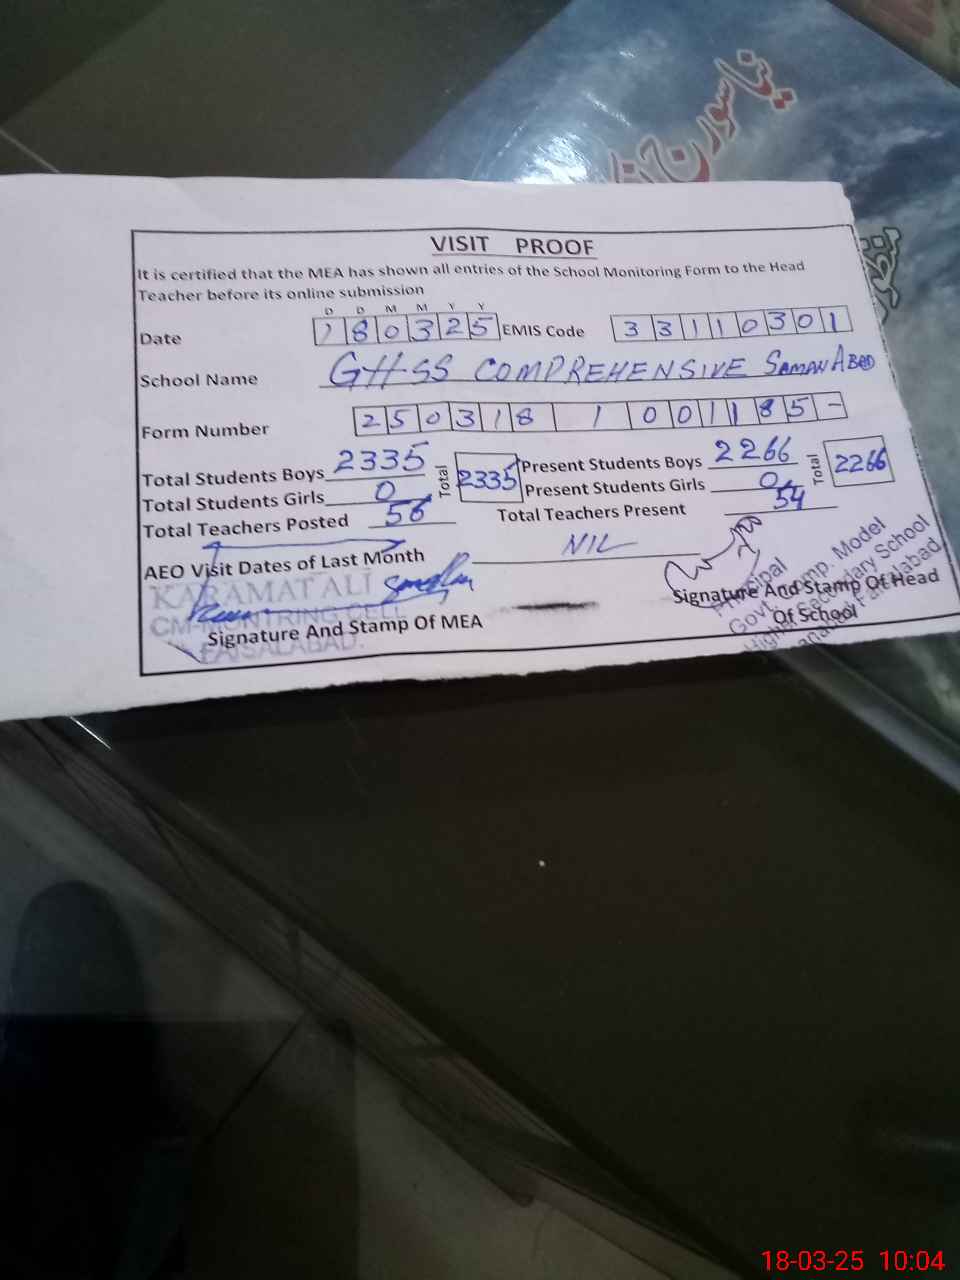 VISIT PROOF
It is certified that the MEA has shown all entries of the School Monitoring Form to the Head
Teacher before its online submission
D D M M Y Y
Date 180325 EMIS Code 33110301
School Name GHSS COMPREHENSIVE SAMANABAD
Form Number 250318 1 001185-
Total Students Boys 2335 Total 2335 Present Students Boys 2266 Total 2266
Total Students Girls 0 Present Students Girls 0
Total Teachers Posted 56 Total Teachers Present 54
AEO Visit Dates of Last Month NIL
KARAMAT ALI
CM-MONTRING CELL
FAISALABAD.
Signature And Stamp Of MEA
Principal
Govt. Comp. Model
Higher Secondary School
Faisalabad
Signature And Stamp Of Head
Of School
18-03-25 10:04